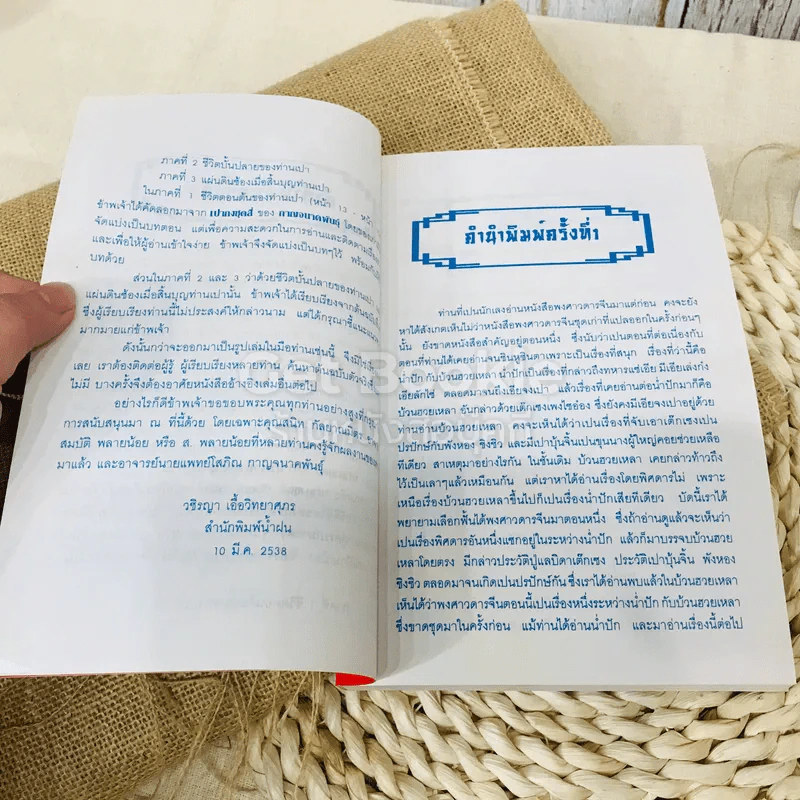 ภาคที่ 2 ชีวิตบั้นปลายของท่านเปา
ภาคที่ 3 แผ่นดินซ้องเมื่อสิ้นบุญท่านเปา
ในภาคที่ 1 ชีวิตตอนต้นของท่านเปา (หน้า 13 -
ข้าพเจ้าได้คัดลอกมาจาก เปาเล่งถูกงอั้น ของ กาญจนาคพันธุ์
จัดแบ่งเป็นบทตอน แต่เพื่อความสะดวกในการอ่านและติดตาม
และเพื่อให้ผู้อ่านเข้าใจง่าย ข้าพเจ้าจึงจัดแบ่งเป็นบทๆไว้
บทด้วย
ส่วนในภาคที่ 2 และ 3 ว่าด้วยชีวิตบั้นปลายของท่านเปา
แผ่นดินซ้องเมื่อสิ้นบุญท่านเปานั้น ข้าพเจ้าได้เรียบเรียงจาก
ซึ่งผู้เรียบเรียงท่านนี้ไม่ประสงค์ให้กล่าวนาม แต่ได้กรุณาชี้แนะ
มากมายแก่ข้าพเจ้า
ดังนั้นกว่าจะออกมาเป็นรูปเล่มในมือท่านเช่นนี้
เลย เราต้องติดต่อผู้รู้ ผู้เรียบเรียงหลายท่าน ค้นหาต้นฉบับตัวจริง
ไม่มี บางครั้งจึงต้องอาศัยหนังสืออ้างอิงเล่มอื่นต่อไป
อย่างไรก็ดีข้าพเจ้าขอขอบพระคุณทุกท่านอย่างสูง
การสนับสนุนมา ณ ที่นี้ด้วย โดยเฉพาะคุณสนิท
สมบัติ พลายน้อย หรือ ส. พลายน้อยที่หลายท่านคงรู้จักผลงาน
มาแล้ว และอาจารย์นายแพทย์โสภิณ กาญจนาคพันธุ์
วชิรญา เอื้อวิทยาศุภร
สำนักพิมพ์น้ำฝน
10 มี.ค. 2538
คำนำพิมพ์ครั้งที่1
ท่านที่เปนนักเลงอ่านหนังสือพงศาวดารจีนมาแต่ก่อน คงจะยัง
หาได้สังเกตเห็นไม่ว่าหนังสือพงศาวดารจีนชุดเก่าที่แปลออกในครั้งก่อนๆ
นั้น ยังขาดหนังสือสำคัญอยู่ตอนหนึ่ง ซึ่งนับว่าเปนตอนที่ต่อเนื่องกับ
ตอนที่ท่านได้เคยอ่านจนชินหูชินตาเพราะเป็นเรื่องที่สนุก เรื่องที่ว่านี้คือ
น่ำปัก กับบ้วนฮวยเหลา น่ำปักเป็นเรื่องที่กล่าวถึงทหารแซ่เอีย มีเอียเล่งกง
เอียลักไช่ ตลอดมาจนถึงเอียจงเปา แล้วเรื่องที่เคยอ่านต่อน่ำปักมาก็คือ
บ้วนฮวยเหลา อันกล่าวด้วยเต็กเซงเพงไซฮ่อง ซึ่งยังคงมีเอียจงเปาอยู่ด้วย
ท่านอ่านบ้วนฮวยเหลา คงจะเห็นได้ว่าเป็นเรื่องที่จับเอาเต็กเซงเปน
ปรปักษ์กับพังหอง ซิงซิว และมีเปาบุ้นจิ้นเปนขุนนางผู้ใหญ่คอยช่วยเหลือ
ทีเดียว สาเหตุมาอย่างไรกัน ในชั้นเดิม บ้วนฮวยเหลา เคยกล่าวท้าวถึง
ไว้เป็นเลาๆแล้วเหมือนกัน แต่เราหาได้อ่านโดยพิศดารไม่ เพราะ
เหนือเรื่องบ้วนฮวยเหลาขึ้นไปก็เปนเรื่องน่ำปักเสียทีเดียว บัดนี้เราได้
พยายามเลือกฟั้นได้พงศาวดารจีนมาตอนหนึ่ง ซึ่งถ้าอ่านดูแล้วจะเห็นว่า
เปนเรื่องพิศดารอันหนึ่งแซกอยู่ในระหว่างน่ำปัก แล้วก็มาบรรจบบ้วนฮวย
เหลาโดยตรง มีกล่าวประวัติปู่แลบิดาเต็กเซง ประวัติเปาบุ้นจิ้น พังหอง
ซิงซิว ตลอดมาจนเกิดเปนปรปักษ์กัน ซึ่งเราได้อ่านพบแล้วในบ้วนฮวยเหลา
เห็นได้ว่าพงศาวดารจีนตอนนี้เปนเรื่องหนึ่งระหว่างน่ำปัก กับบ้วนฮวยเหลา
ซึ่งขาดชุดมาในครั้งก่อน แม้ท่านได้อ่านน่ำปัก และมาอ่านเรื่องนี้ต่อไป
Get Bookie